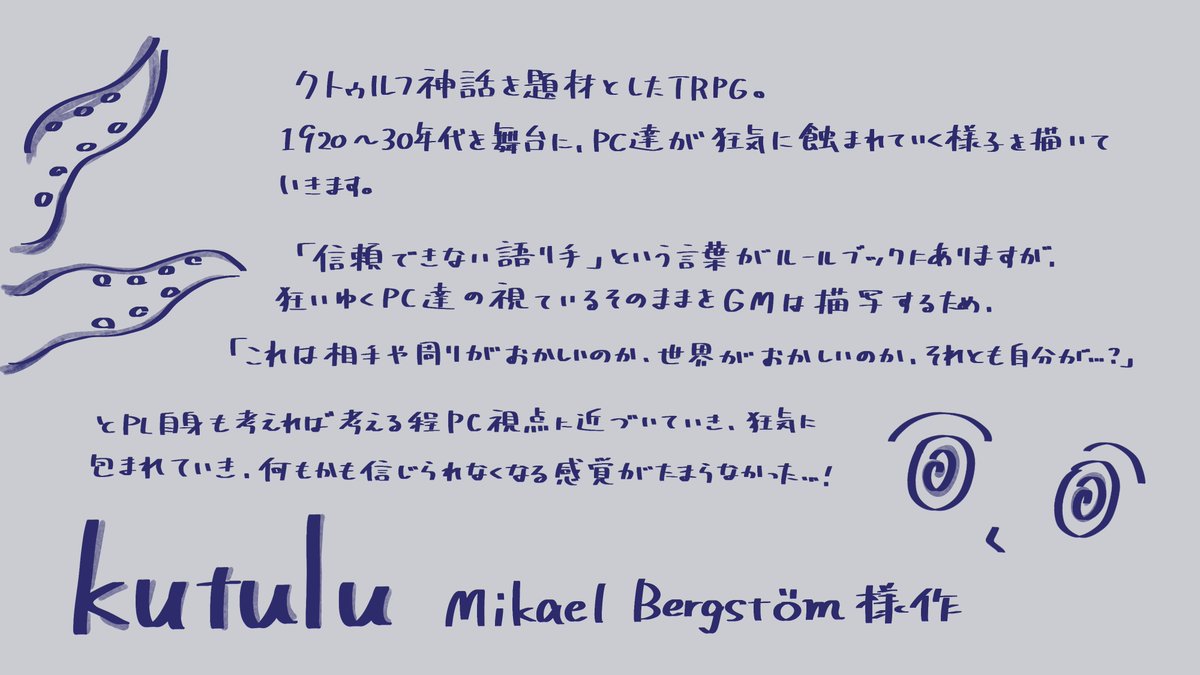 クトゥルフ神話を題材としたTRPG。
1920～30年代を舞台に、PC達が狂気に蝕まれていく様子を描いて
いきます。
「信頼できない語り手」という言葉がルールブックにありますが、
狂いゆくPC達の視ているそのままをGMは描写するため、
「これは相手や周りがおかしいのか、世界がおかしいのか、それとも自分が…?」
とPL自身も考えれば考える程PC視点に近づいていき、狂気に
包まれていき、何もかも信じられなくなる感覚がたまらなかった…!
kutulu Mikael Bergström様作